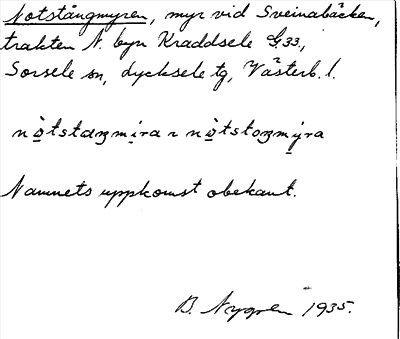 Notstångmyren, myr vid Sveinabäcken,
trakten N. byn Kraddsele G.33,
Sorsele sn, Lycksele tg, Västerb. l.
nò̤tstaŋmi̤ra ~ nò̤tstoŋmy̤ra
Namnets uppkomst obekant.
B. Nygren 1935.